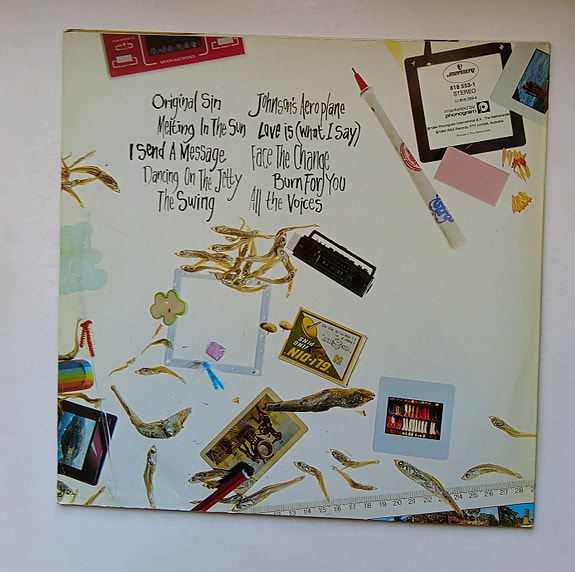 Original Sin
Melting In The Sun
I Send A Message
Dancing On The Jetty
The Swing
Johnson's Aeroplane
Love is (What I Say)
Face The Change
Burn For You
All the Voices
mercury
818 553-1
STEREO
marketed by
phonogram
GLI-DIN
PINS
13 14 15 16 17 18 19 20 21 22 23 24 25 26 27 28